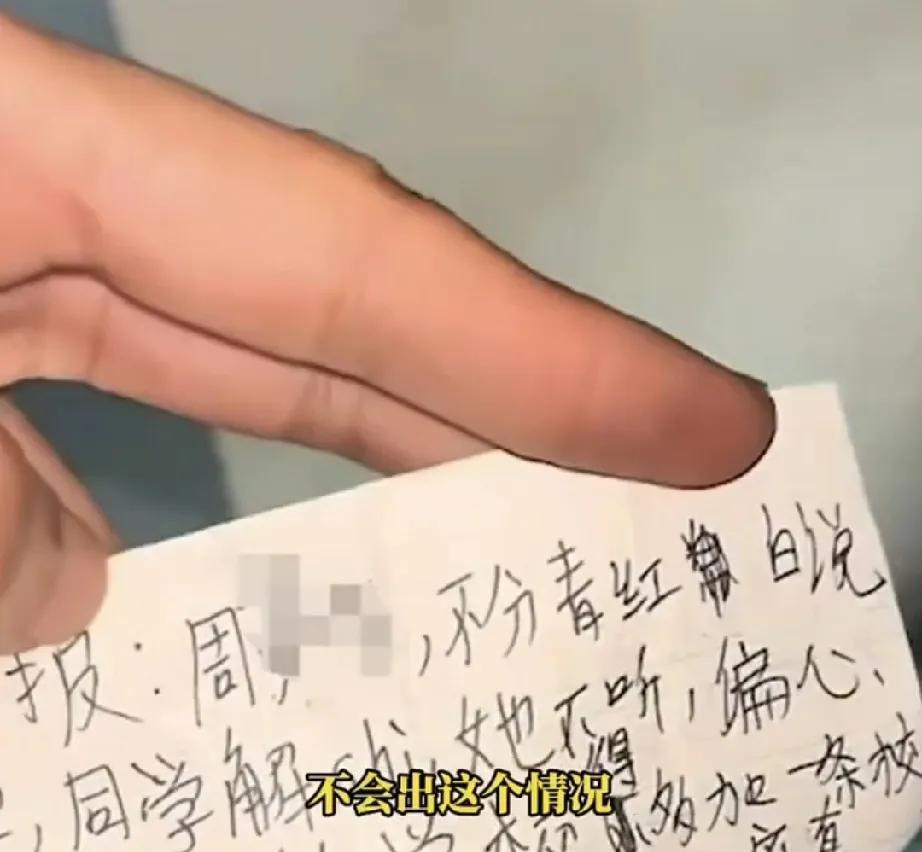 报：周，不分青红 白说
同学解shi，她不听，偏心、
得 多加一条校
不会出这个情况